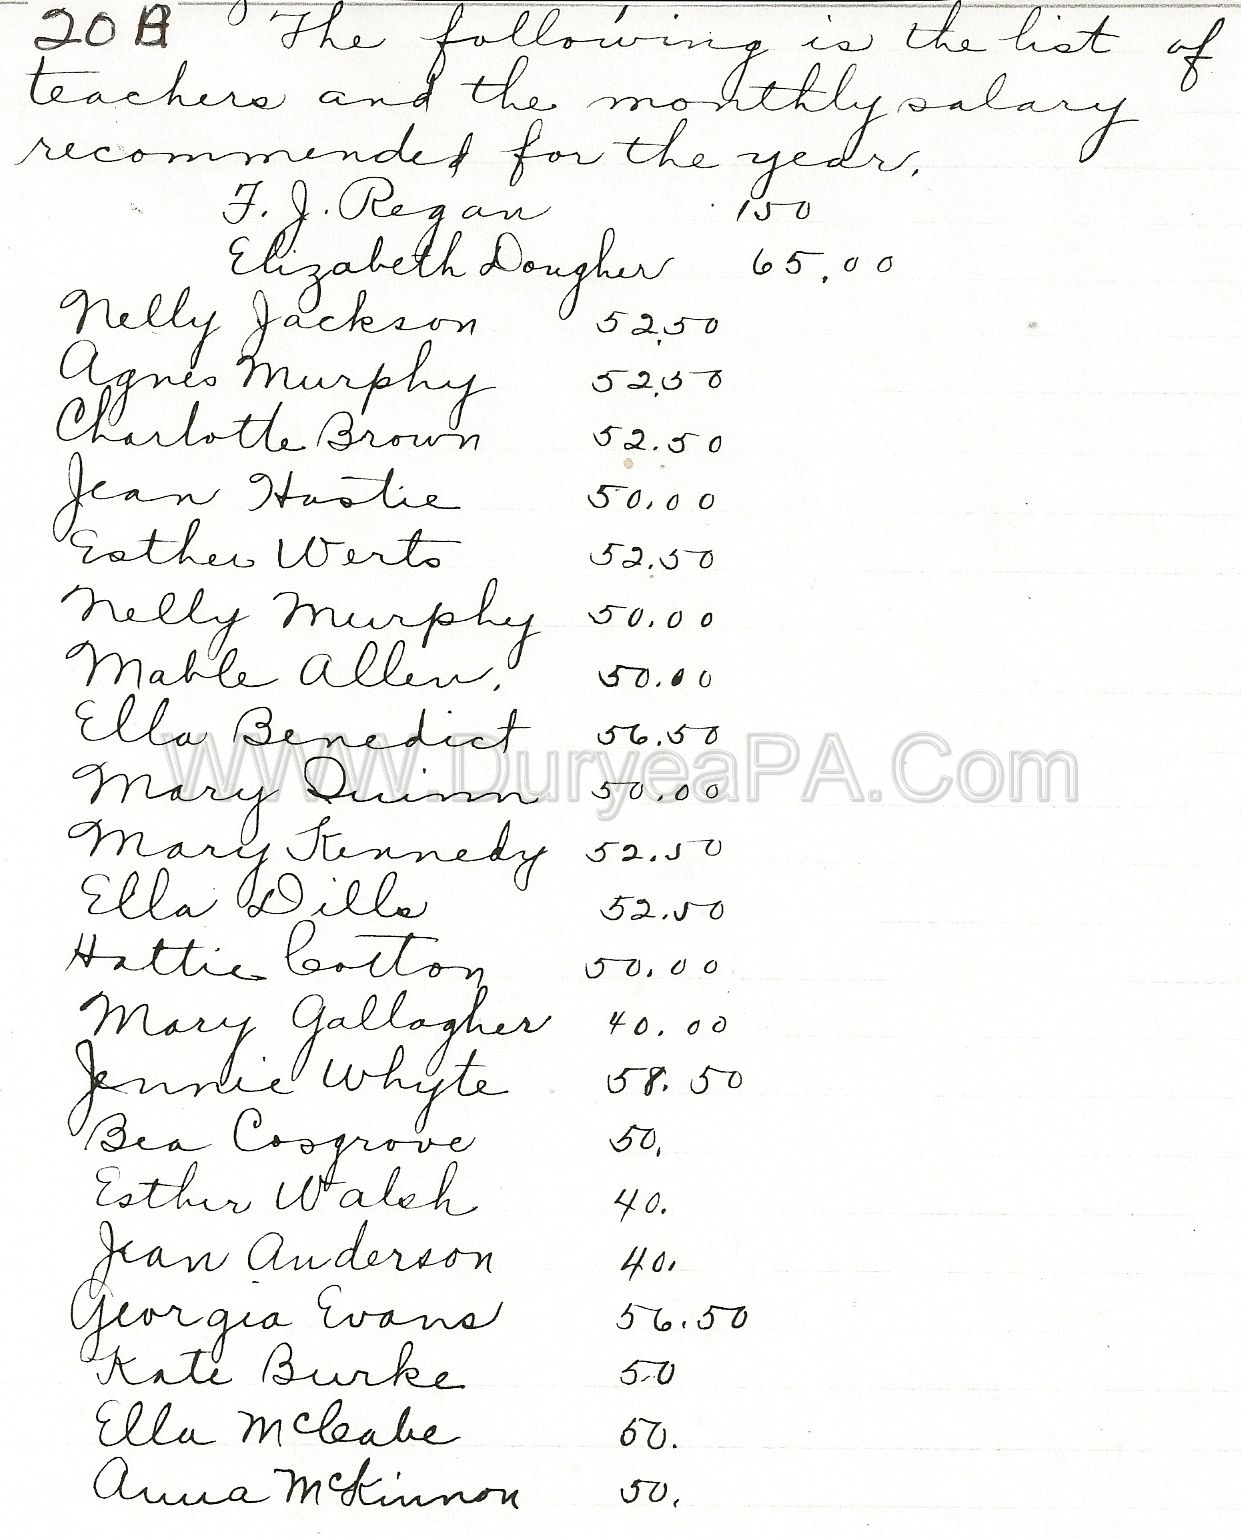 20 B The following is the list of
teachers and the monthly salary
recommended for the year.
F. J. Regan 150
Elizabeth Dougher 65.00
Nelly Jackson 52.50
Agnes Murphy 52.50
Charlotte Brown 52.50
Jean Hastie 50.00
Esther Werts 52.50
Nelly Murphy 50.00
Mable Allen. 50.00
Ella Benedict 56.50
WWW.DuryeaPA.Com
Mary Quinn 50.00
Mary Kennedy 52.50
Ella Dills 52.50
Hattie Cotton 50.00
Mary Gallagher 40.00
Jennie Whyte 58.50
Bea Cosgrove 50.
Esther Walsh 40.
Jean Anderson 40.
Georgia Evans 56.50
Kate Burke 50
Ella McCabe 50.
Anna McKinnon 50.